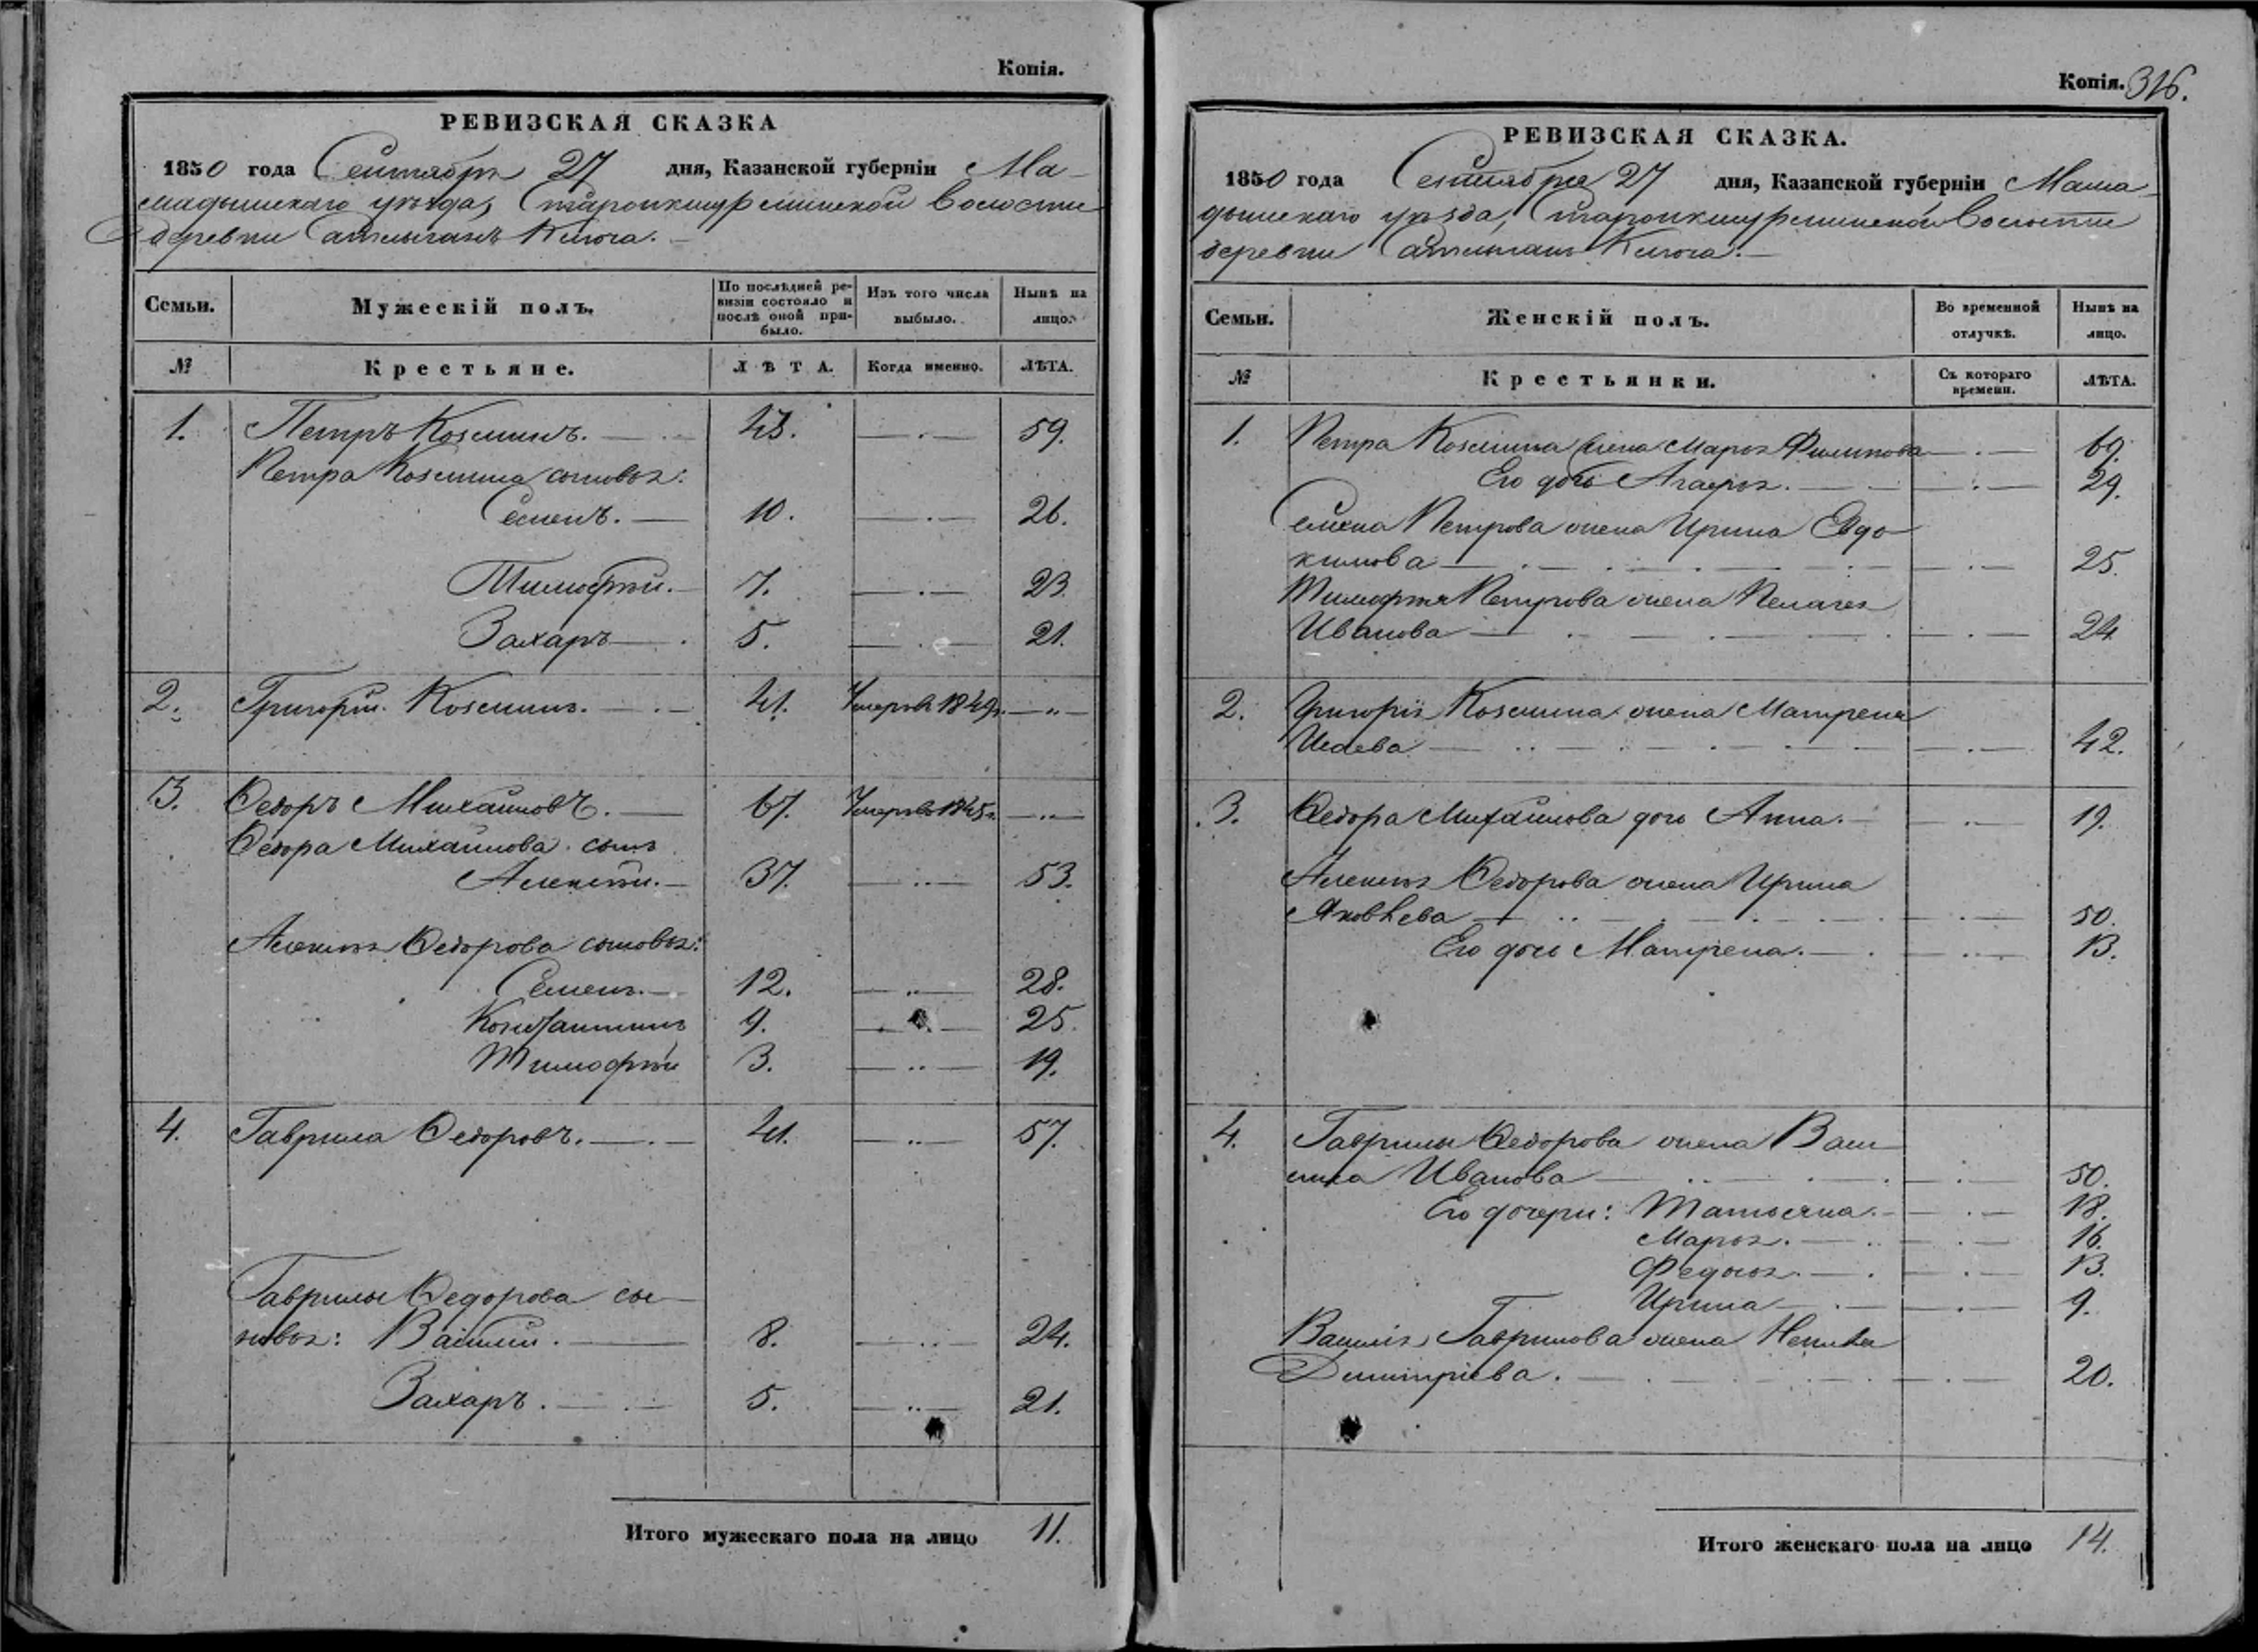 Копія.
РЕВИЗСКАЯ СКАЗКА
1850 года Сентября 27 дня, Казанской губерніи Ма-
мадышскаго уѣзда, Староикшурминской волости
деревни Ключа.
Семьи. Мужескій полъ. По послѣдней ре-визіи состояло и послѣ оной при-было. Изъ того числа выбыло. Нынѣ на лицо.
№ Крестьяне. ЛѢТА. Когда именно. ЛѢТА.
1. Петръ Козминъ. 43. 59.
Петра Козмина сыновья:
Семенъ. 10. 26.
Тимофѣй. 7. 23.
Захаръ 5. 21.
2. Григорій Козминъ. 41. Умеръ въ 1849 г.
3. Ѳедоръ Михайловъ. 67. Умеръ въ 1845 г.
Ѳедора Михайлова сынъ
Алексѣй. 37. 53.
Алексѣя Ѳедорова сыновья:
Семенъ. 12. 28.
Константинъ 9. 25.
Тимофѣй 3. 19.
4. Гаврила Ѳедоровъ. 41. 57.
Гаврилы Ѳедорова сы-
новья: Василій. 8. 24.
Захаръ. 5. 21.
Итого мужескаго пола на лицо 11.
Копія. 316.
РЕВИЗСКАЯ СКАЗКА.
1850 года Сентября 27 дня, Казанской губерніи Мама-
дышскаго уѣзда, Староикшурминской волости
деревни Ключа.
Семьи. Женскій полъ. Во временной отлучкѣ. Нынѣ на лицо.
№ Крестьянки. Съ котораго времени. ЛѢТА.
1. Петра Козмина жена Марья Филипова 69.
Его дочь Агафья. 29.
Семена Петрова жена Ирина Евдо-
кимова 25.
Тимофѣя Петрова жена Пелагея
Иванова 24.
2. Григорія Козмина жена Матрена
Исаева 42.
3. Ѳедора Михайлова дочь Анна. 19.
Алексѣя Ѳедорова жена Ирина
Яковлева 50.
Его дочь Матрена. 13.
4. Гаврилы Ѳедорова жена Васи-
лиса Иванова 50.
Его дочери: Татьяна. 18.
Марья. 16.
Федосья. 13.
Ирина 9.
Василія Гаврилова жена
Димитріева. 20.
Итого женскаго пола на лицо 14.